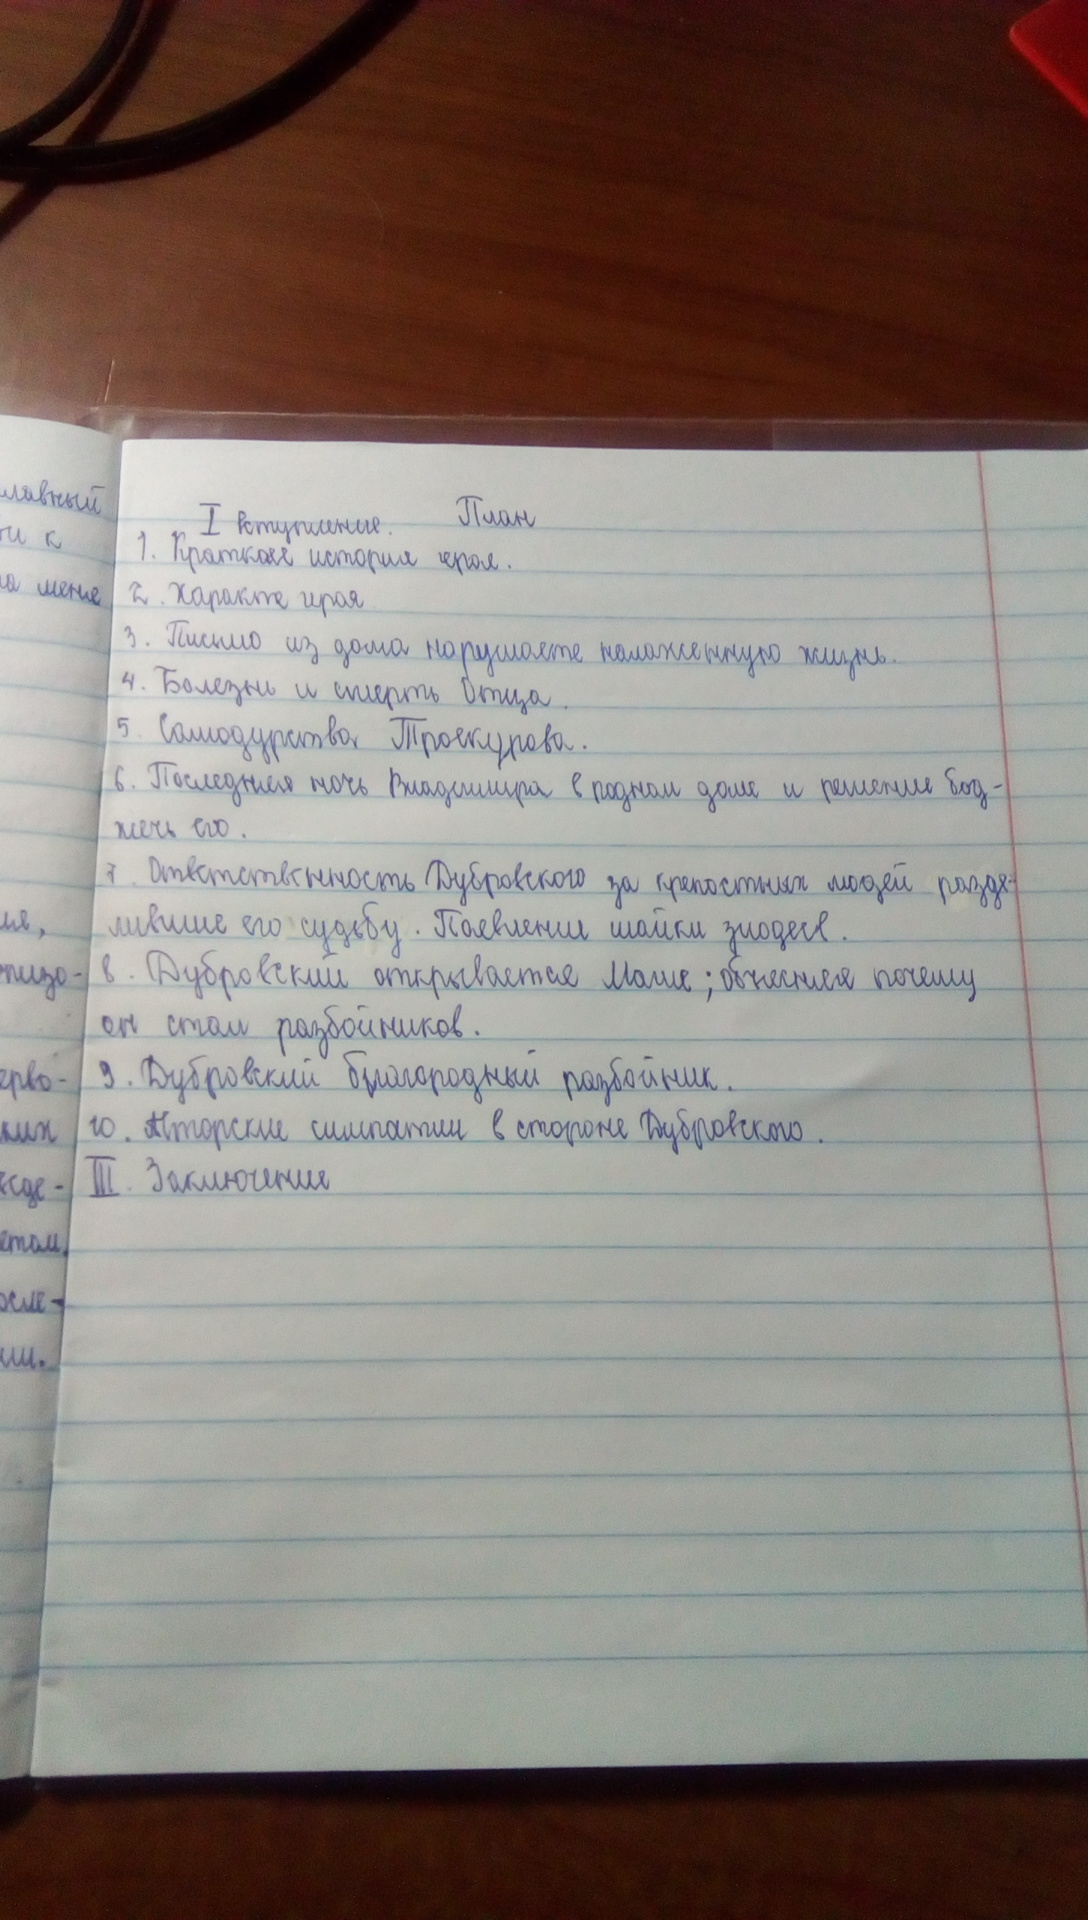 План
I Вступление.
1. Краткая история героя.
2. Характе героя
3. Письмо из дома нарушаете налаженную жизнь.
4. Болезнь и смерть Отца.
5. Самодурства Троекурова.
6. Последняя ночь Владимира в родном доме и решение под-
жечь его.
7. Ответственность Дубровского за крепостных людей разде-
лившие его судьбу. Появление шайки злодеев.
8. Дубровский открывается Маше; объясняя почему
он стал разбойников.
9. Дубровский благородный разбойник.
10. Авторские симпатии в стороне Дубровского.
III. Заключение
главный
ки к
на мене
ия,
ерво-
ких
сде-
етом
осле-
ии.